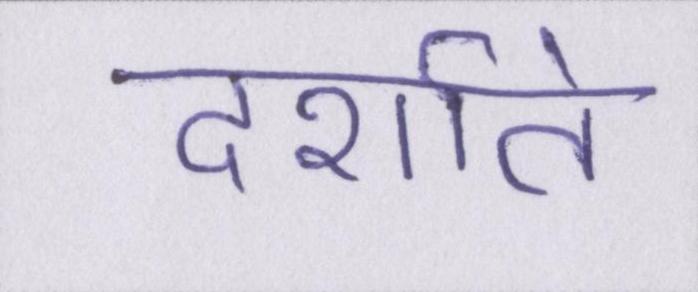 दर्शाते